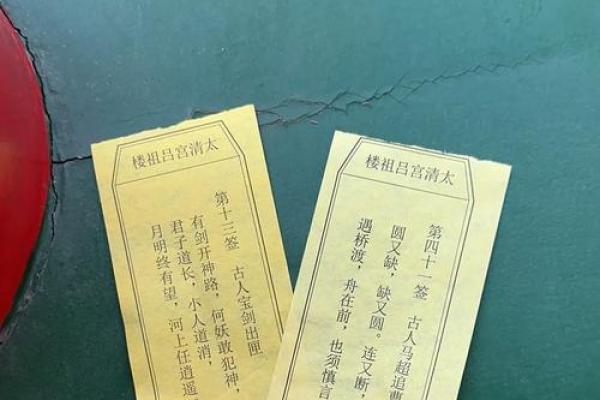 太清宫吕祖楼
第十三签 古人宝剑出匣
有剑开神路，何妖敢犯神，
君子道长，小人道消，
月明终有望，河上任逍遥
太清宫吕祖楼
第四十一签 古人马超追曹
圆又缺，缺又圆。连又断，
遇桥渡，舟在前，也须慎言